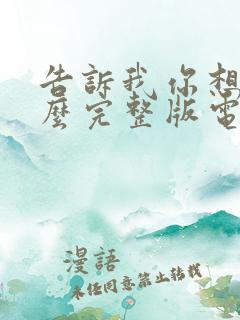 告訴我你想
麼完整版電
漫語
未經同意禁止轉載